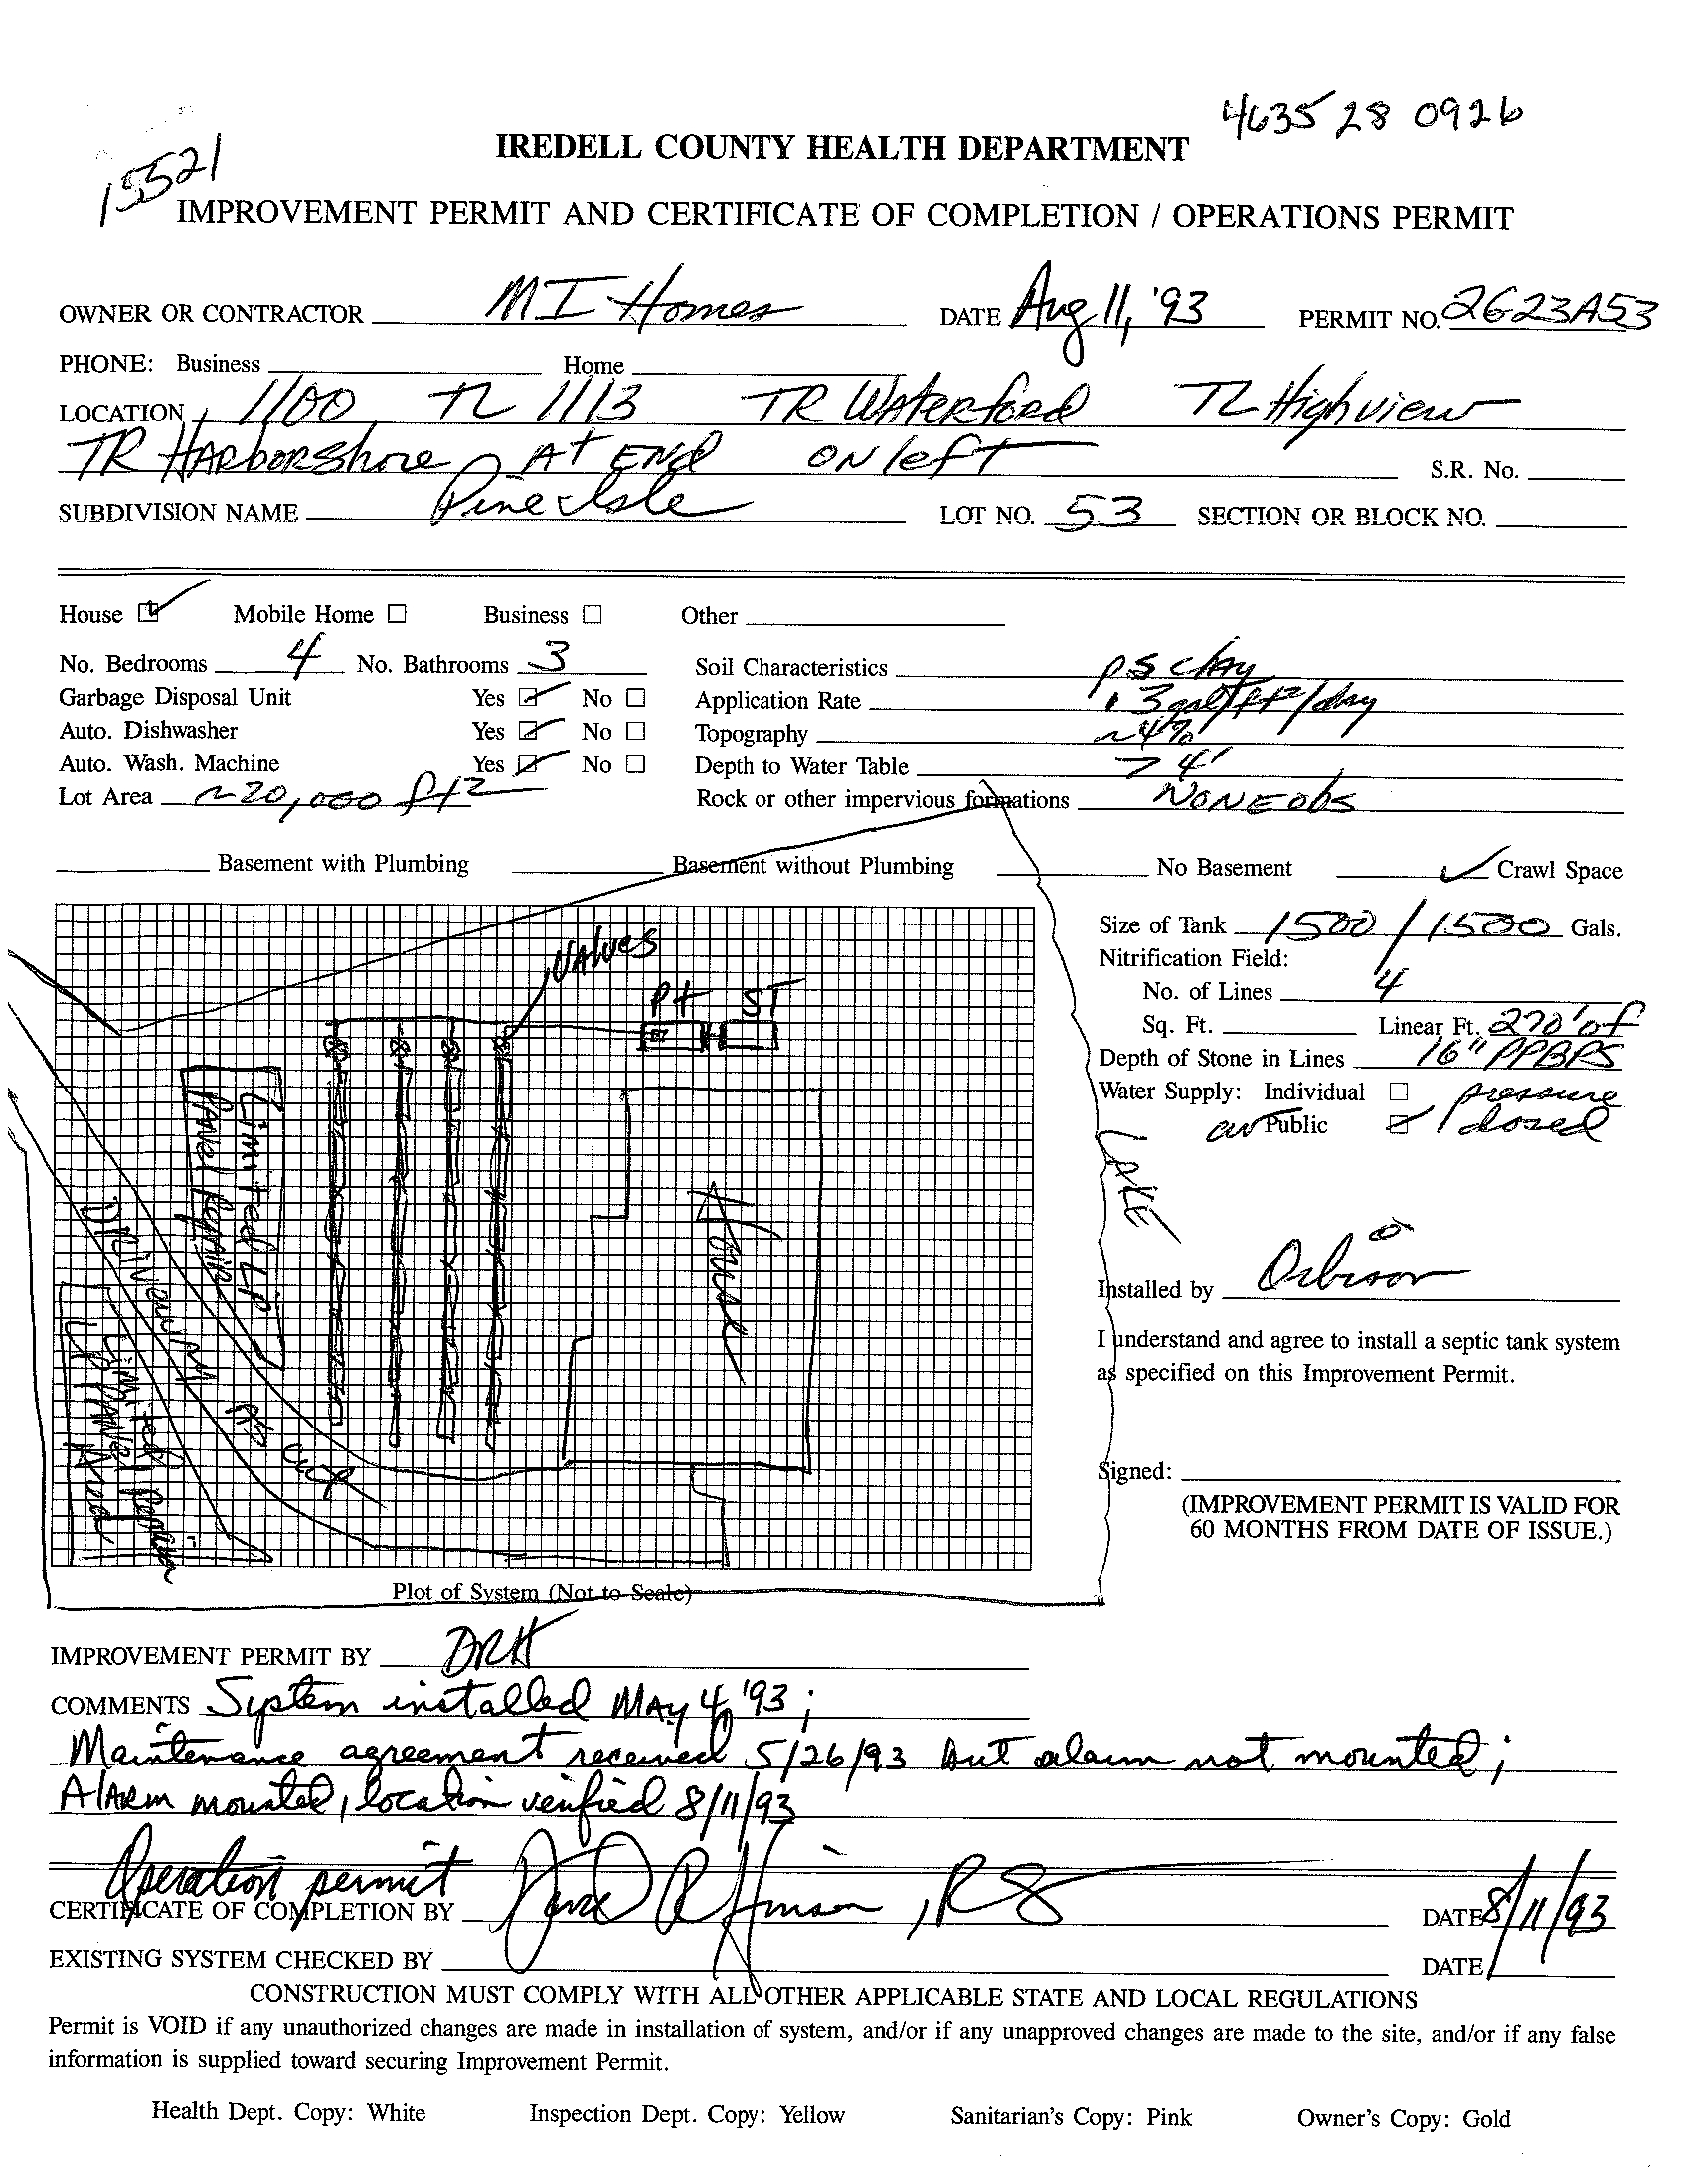 4635 28 0926
15521
IREDELL COUNTY HEALTH DEPARTMENT
IMPROVEMENT PERMIT AND CERTIFICATE OF COMPLETION / OPERATIONS PERMIT
OWNER OR CONTRACTOR MI Homes DATE Aug 11, '93 PERMIT NO. 2623A53
PHONE: Business Home
LOCATION 1100 TL 1113 TR Waterford TL Highview
TR Harborshore At End on left S.R. No.
SUBDIVISION NAME Pine Isle LOT NO. 53 SECTION OR BLOCK NO.
House Mobile Home Business Other
No. Bedrooms 4 No. Bathrooms 3 Soil Characteristics PS clay
Garbage Disposal Unit Yes No Application Rate .3 gal/ft²/day
Auto. Dishwasher Yes No Topography ~4%
Auto. Wash. Machine Yes No Depth to Water Table > 4'
Lot Area ~20,000 ft² Rock or other impervious formations None obs
Basement with Plumbing Basement without Plumbing No Basement Crawl Space
Valves
Pt ST
House
Limited LP
Panel Repair
Driveway
Limited
LP Panel Repair
Area
Lake
Size of Tank 1500 / 1500 Gals.
Nitrification Field:
No. of Lines 4
Sq. Ft. Linear Ft. 270' of
Depth of Stone in Lines 16" PPBPS
Water Supply: Individual pressure
Public dosed
Installed by Orbison
I understand and agree to install a septic tank system
as specified on this Improvement Permit.
Signed:
(IMPROVEMENT PERMIT IS VALID FOR
60 MONTHS FROM DATE OF ISSUE.)
Plot of System (Not to Scale)
IMPROVEMENT PERMIT BY DRH
COMMENTS System installed May 4, '93;
Maintenance agreement received 5/26/93 but alarm not mounted;
Alarm mounted, location verified 8/11/93
Operation permit
CERTIFICATE OF COMPLETION BY David R Hinson, RS DATE 8/11/93
EXISTING SYSTEM CHECKED BY DATE
CONSTRUCTION MUST COMPLY WITH ALL OTHER APPLICABLE STATE AND LOCAL REGULATIONS
Permit is VOID if any unauthorized changes are made in installation of system, and/or if any unapproved changes are made to the site, and/or if any false
information is supplied toward securing Improvement Permit.
Health Dept. Copy: White Inspection Dept. Copy: Yellow Sanitarian's Copy: Pink Owner's Copy: Gold